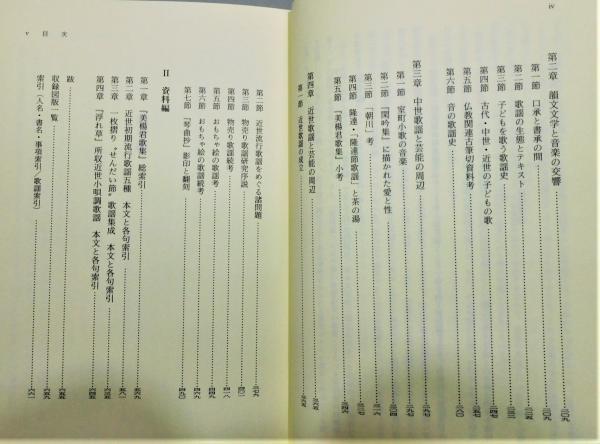 iv
第二章 韻文文学と音楽の交響……二〇九
第一節 口承と書承の間……二〇九
第二節 歌謡の生態とテキスト……二二〇
第三節 子どもを歌う歌謡史……二三二
第四節 古代・中世・近世の子どもの歌
第五節 仏教関連古筆切資料考……二五七
第六節 音の歌謡史……二八〇
第三章 中世歌謡と芸能の周辺……二九七
第一節 室町小歌の音楽……二九七
第二節 『閑吟集』に描かれた愛と性……三〇四
第三節 「朝川」考……三一六
第四節 隆達・「隆達節歌謡」と茶の湯……三二七
第五節 『美楊君歌集』小考……三四六
第四章 近世歌謡と芸能の周辺……三六五
第一節 近世歌謡の成立……三六五
v 目次
第二節 近世流行歌謡をめぐる諸問題……三七九
第三節 物売り歌謡研究序説……四〇二
第四節 物売り歌謡続考……四一八
第五節 おもちゃ絵の歌謡考……四三九
第六節 おもちゃ絵の歌謡続考……四六九
第七節 『琴曲抄』影印と翻刻……四九〇
II 資料編
第一章 『美楊君歌集』総索引……五六九
第二章 近世初期流行歌謡五種 本文と各句索引……五八一
第三章 一枚摺り"せんだい節"歌謡集成 本文と各句索引
第四章 『浮れ草』所収近世小唄調歌謡 本文と各句索引……六四五
跋……六五五
収録図版一覧……六五九
索引(人名・書名・事項索引/歌謡索引)……六六一